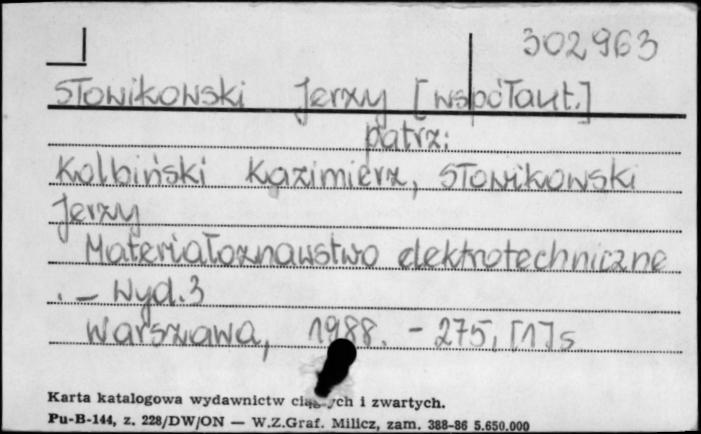 302963
Słowikowski Jerzy [współaut.]
patrz:
Kolbiński Kazimierz, Słowikowski
Jerzy
Materiałoznawstwo elektrotechniczne
. – Wyd.3
Warszawa, 1988. – 275, [1] s
Karta katalogowa wydawnictw ciągłych i zwartych.
Pu-B-144, z. 228/DW/ON — W.Z.Graf. Milicz, zam. 388-86 5.650.000